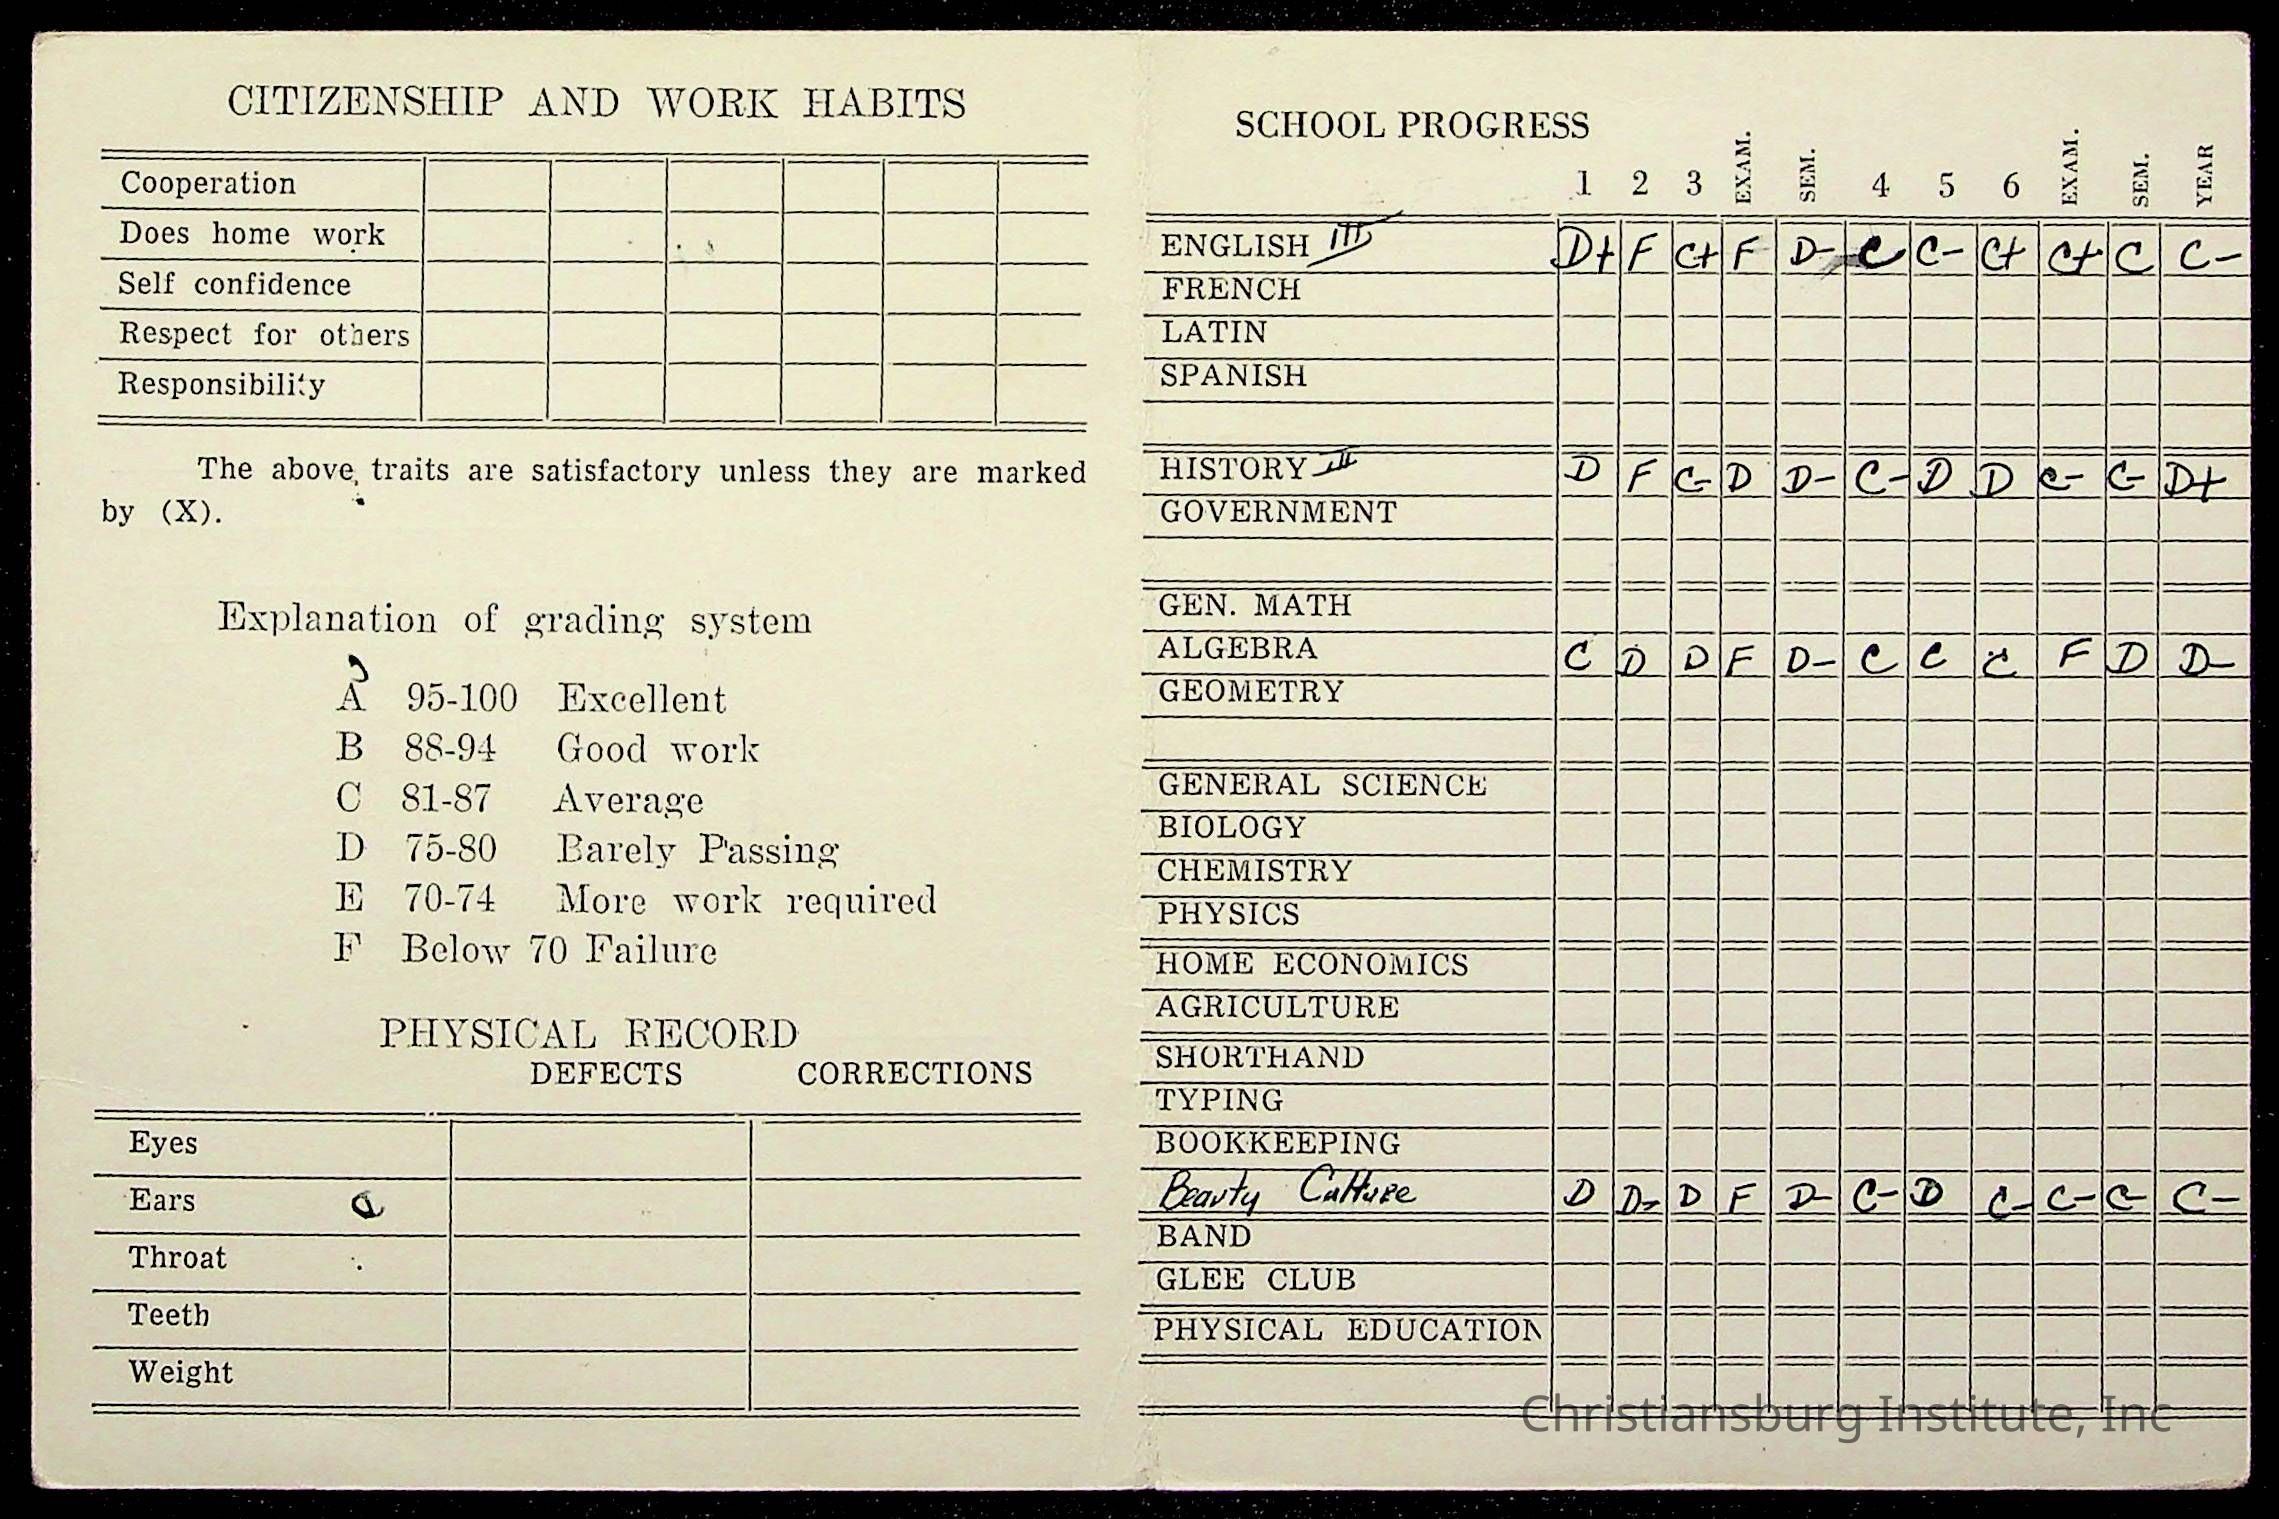 CITIZENSHIP AND WORK HABITS
Cooperation
Does home work
Self confidence
Respect for others
Responsibility
The above traits are satisfactory unless they are marked
by (X).
Explanation of grading system
A 95-100 Excellent
B 88-94 Good work
C 81-87 Average
D 75-80 Barely Passing
E 70-74 More work required
F Below 70 Failure
PHYSICAL RECORD
DEFECTS CORRECTIONS
Eyes
Ears
Throat
Teeth
Weight
SCHOOL PROGRESS
1 2 3 EXAM. SEM. 4 5 6 EXAM. SEM. YEAR
ENGLISH III D+ F C+ F D- C C- C+ C+ C C-
FRENCH
LATIN
SPANISH
HISTORY III D F C- D D- C- D D C- C- D+
GOVERNMENT
GEN. MATH
ALGEBRA C D D F D- C C C F D D-
GEOMETRY
GENERAL SCIENCE
BIOLOGY
CHEMISTRY
PHYSICS
HOME ECONOMICS
AGRICULTURE
SHORTHAND
TYPING
BOOKKEEPING
Beauty Culture D D- D F D- C- D C- C- C- C-
BAND
GLEE CLUB
PHYSICAL EDUCATION
Christiansburg Institute, Inc